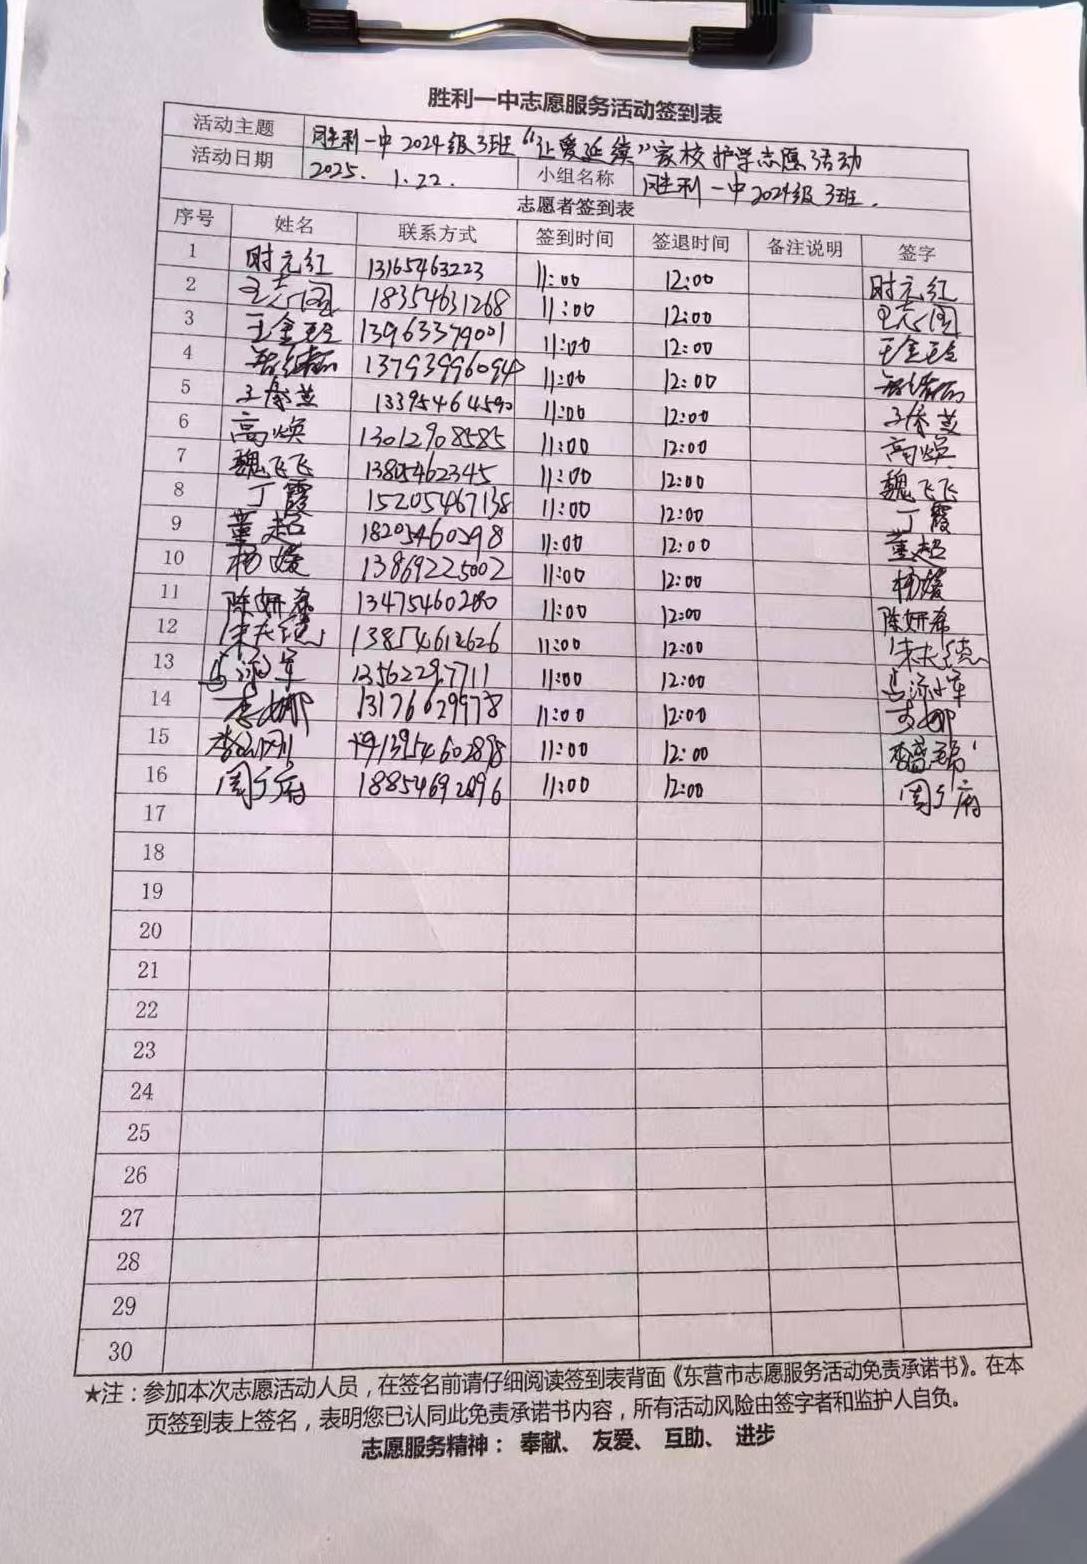 胜利一中志愿服务活动签到表
活动主题 胜利一中2024级3班“让爱延续”家校护学志愿活动
活动日期 2025.1.22. 小组名称 胜利一中2024级3班.
志愿者签到表
序号 姓名 联系方式 签到时间 签退时间 备注说明 签字
1 时元红 13165463223 11:00 12:00 时元红
2 18354631268 11:00 12:00
3 王金玲 13963379001 11:00 12:00 王金玲
4 13793996094 11:00 12:00
5 13395464590 11:00 12:00
6 高焕 13012908585 11:00 12:00 高焕
7 魏飞飞 13805462345 11:00 12:00 魏飞飞
8 丁霞 15205467138 11:00 12:00 丁霞
9 董超 18205460598 11:00 12:00 董超
10 杨媛 13869225002 11:00 12:00 杨媛
11 陈妍希 13475460280 11:00 12:00 陈妍希
12 13854612626 11:00 12:00
13 11:00 12:00
14 李娜 13176629978 11:00 12:00 李娜
15 11:00 12:00
16 周 府 11:00 12:00 周 府
17
18
19
20
21
22
23
24
25
26
27
28
29
30
★注：参加本次志愿活动人员，在签名前请仔细阅读签到表背面《东营市志愿服务活动免责承诺书》。在本
页签到表上签名，表明您已认同此免责承诺书内容，所有活动风险由签字者和监护人自负。
志愿服务精神： 奉献、 友爱、 互助、 进步